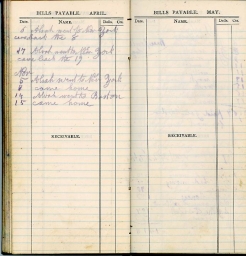 BILLS PAYABLE. APRIL.
Date. NAME. Dolls. Cts.
5 Alick went to New York
came back the 8
17 Alick went to New York
came back the 19
Nov
5 Alick went to New York
8 came home
14 Alick went to Boston
15 came home
RECEIVABLE.
BILLS PAYABLE. MAY.
Date. NAME. Dolls. Cts.
RECEIVABLE.